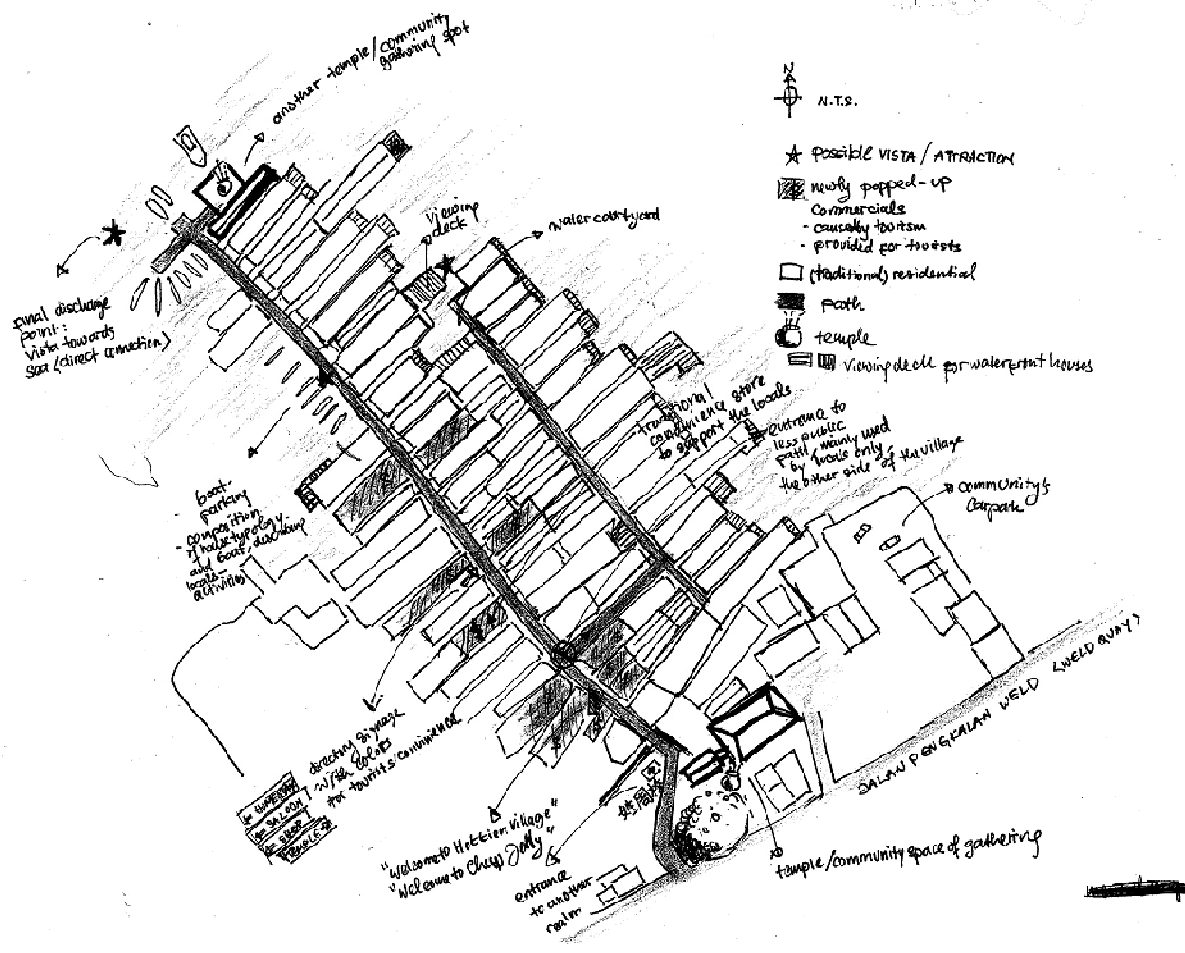 another temple/community
gathering spot
N
N.T.S.
possible VISTA / ATTRACTION
newly popped-up
commercials
- caused by tourism
- provided for tourists
(traditional) residential
path
temple
viewing deck for waterfront houses
viewing
deck
water courtyard
final discharge
point:
vista towards
sea (direct connection)
traditional
convenience store
to support the locals
entrance to
less public
path, mainly used
by locals only -
the other side of the village
community's
carpark
- boat-
parking
- composition
of
and boat, disclosing
locals'
activities
directory signage
with colors
for tourists convenience
← HOMESTAY
← SALOON
← SHOP
TEMPLE
"Welcome to Heritage Village"
"Welcome to Chew Jetty"
姓周
entrance
to another
realm
temple/community space of gathering
JALAN PENGKALAN WELD (WELD QUAY)